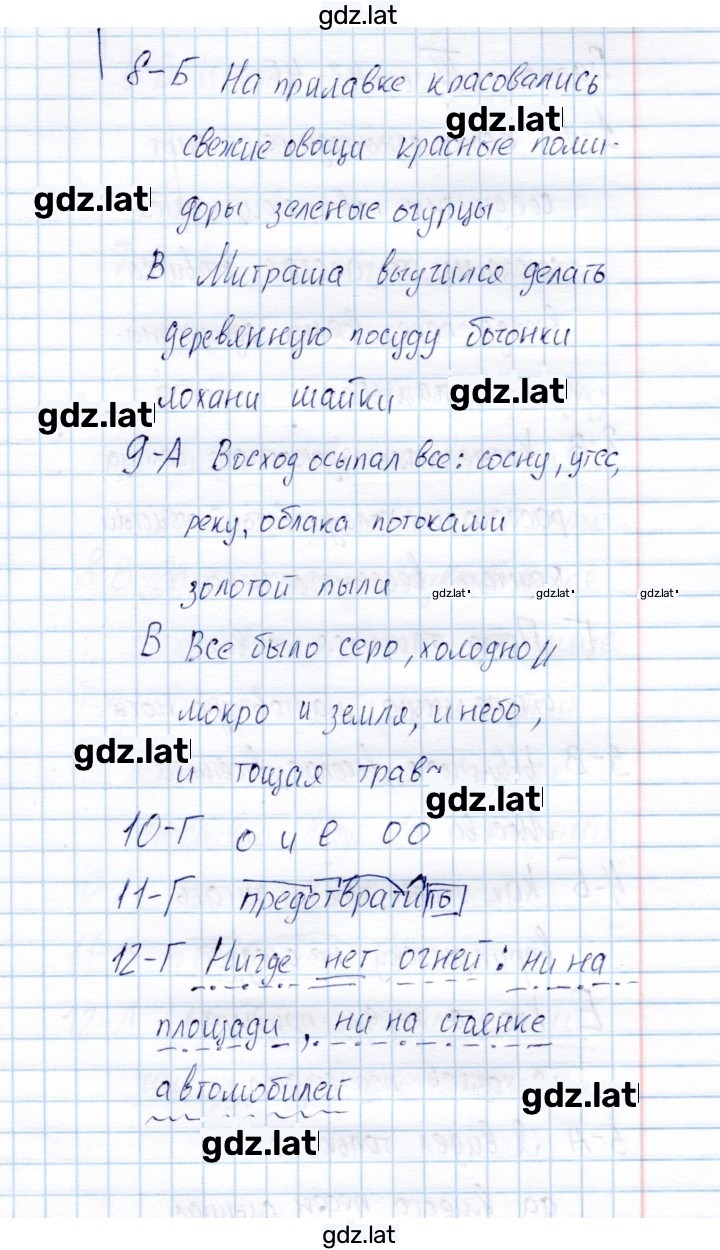 gdz.lat
8-Б На прилавке красовались
gdz.lat
свежие овощи красные поми-
gdz.lat
доры зеленые огурцы
В Митраша выучился делать
деревянную посуду бочонки
gdz.lat
лохани шайки
gdz.lat
9-А Восход осыпал все: сосну, утес,
реку, облака потоками
золотой пыли
gdz.lat gdz.lat gdz.lat
В Все было серо, холодно //
мокро и земля, и небо,
gdz.lat
и тощая трав~
gdz.lat
10-Г о и е оо
11-Г предотвратить
12-Г Нигде нет огней: ни на
площади, ни на стоянке
автомобилей
gdz.lat
gdz.lat
gdz.lat